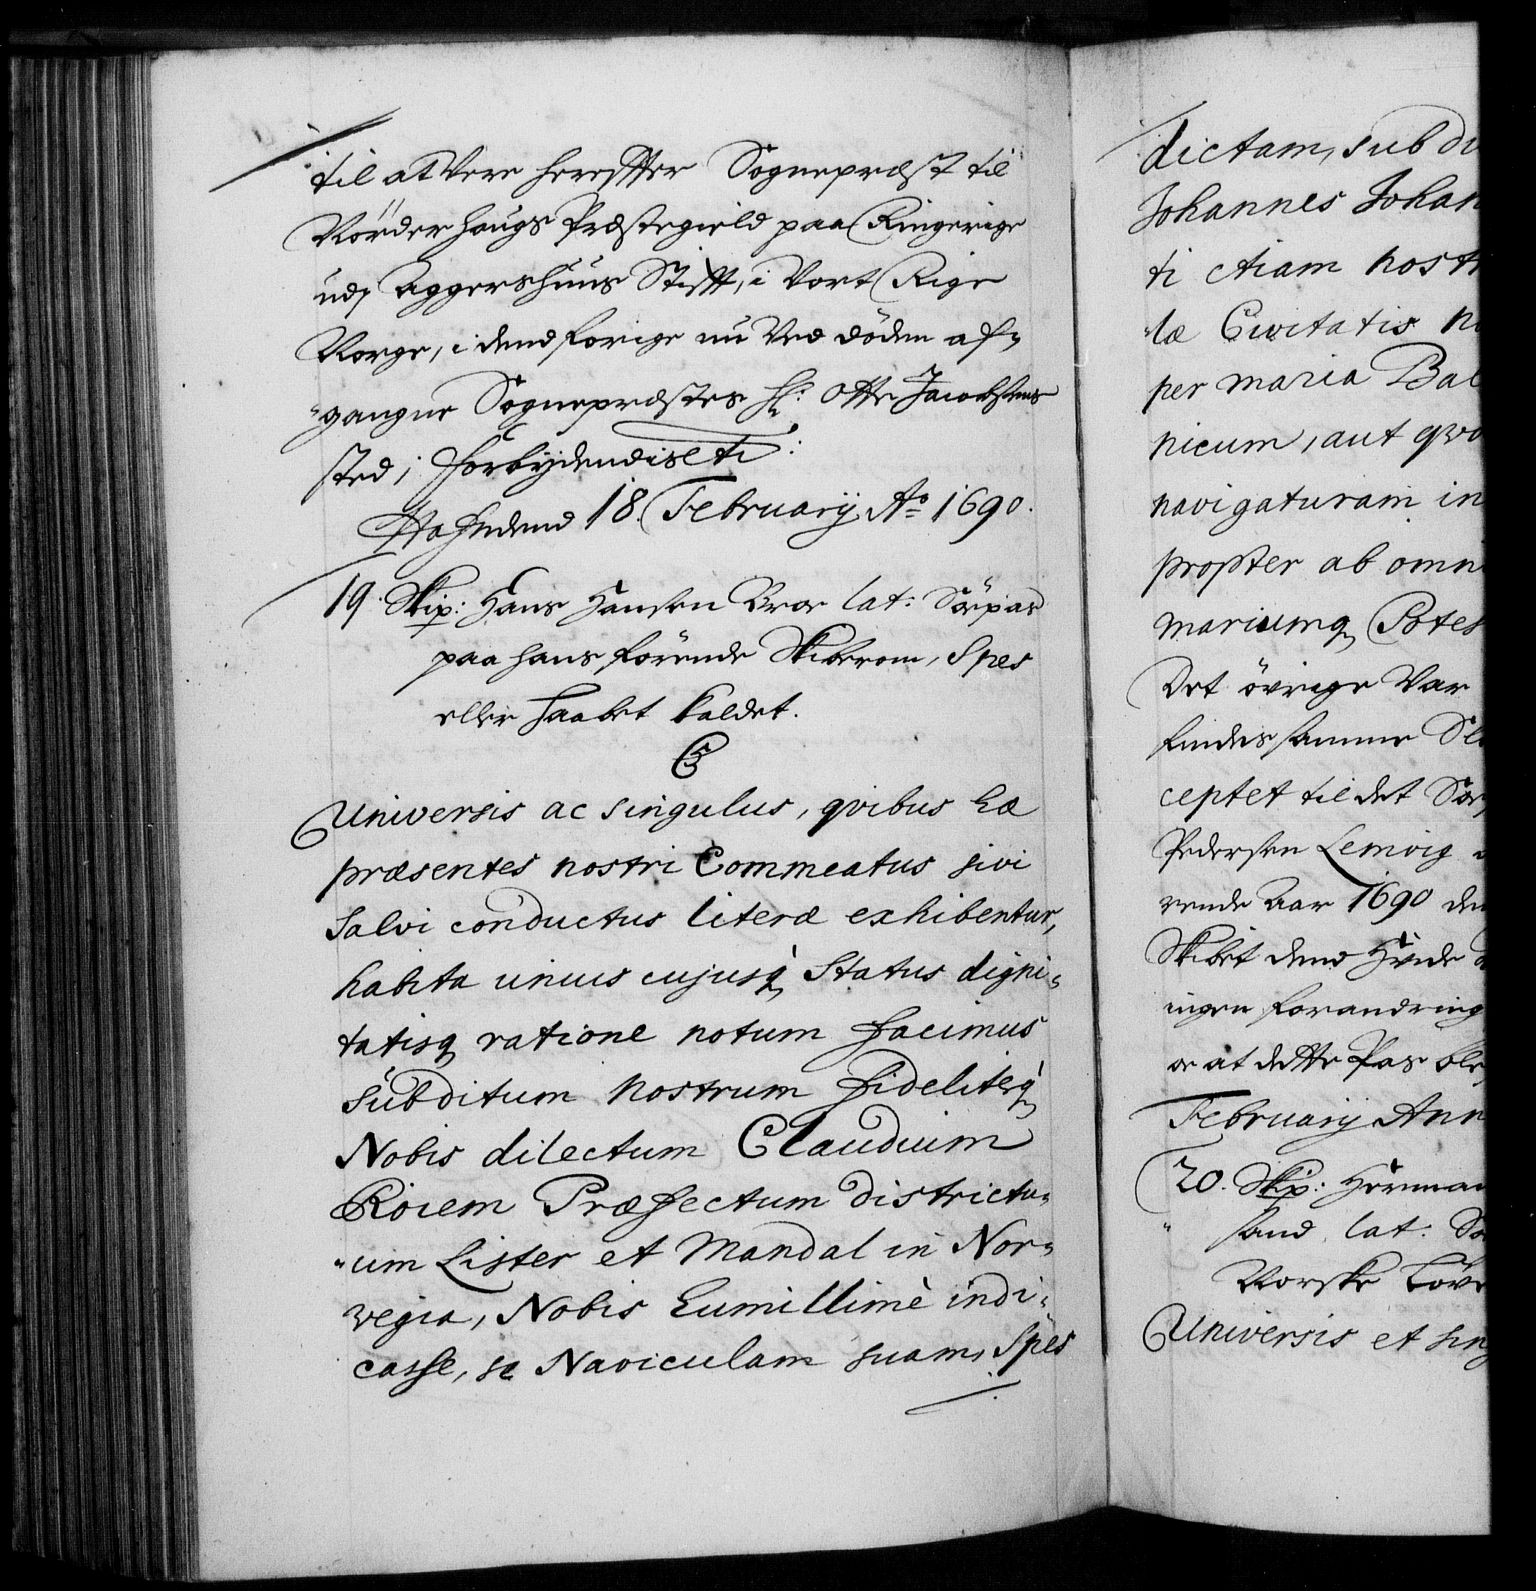 til at Vere herefter Sognepræst til
Nörderhaugs Præstegield paa Ringerige
udj Aggershuus Stifft, i Vort Rige
Norge, i dend forige nu Ved döden af-
gangne Sognepræstes Hr: Otte Jacobsens
sted; Forbydendis etc:
Hafn dend 18. February Ao 1690.
19. Skip: Hans Hansen Bror lat: Söepas
paa hans förende Skiberom, Spes
eller Haabet kaldet.
C5
Universis ac singulus, qvibus hæ
præsentes nostri Commeatus sivi
Salvi conductus literæ exhibentur,
habita unius cujusq Status digni-
tatisq ratione notum facimus
subditum nostrum fideliterq
Nobis dilectum Claudium
Roiem Præfectum districtu-
um Lister et Mandal in Nor-
wegia, Nobis humillimè indi-
casse, se Naviculam suam, Spes
dictam, sub di
Johannes Johan
ti etiam nost
læ Civitatis n
per maria Bal
nicum, aut qvo
navigaturam in
propter ab omni
mariumq Potes
Det övrige Var
findis samme
ceptet til det Söe
Pedersen Lemvig
rende Aar 1690 den
Skibet dend Hvide
ingen forandring
oc at dette Pas ble
February Ann
20. Skip: Herman
sand lat: Sö
Norske Löve
Universis et sing